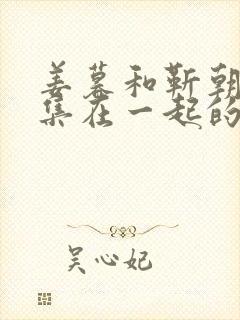 姜暮和靳朝
集在一起的
吴心妃